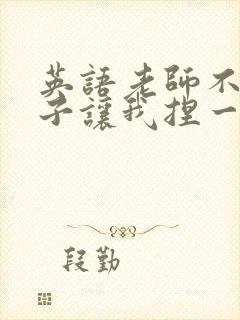 英語老師不
子讓我捏一
段勤